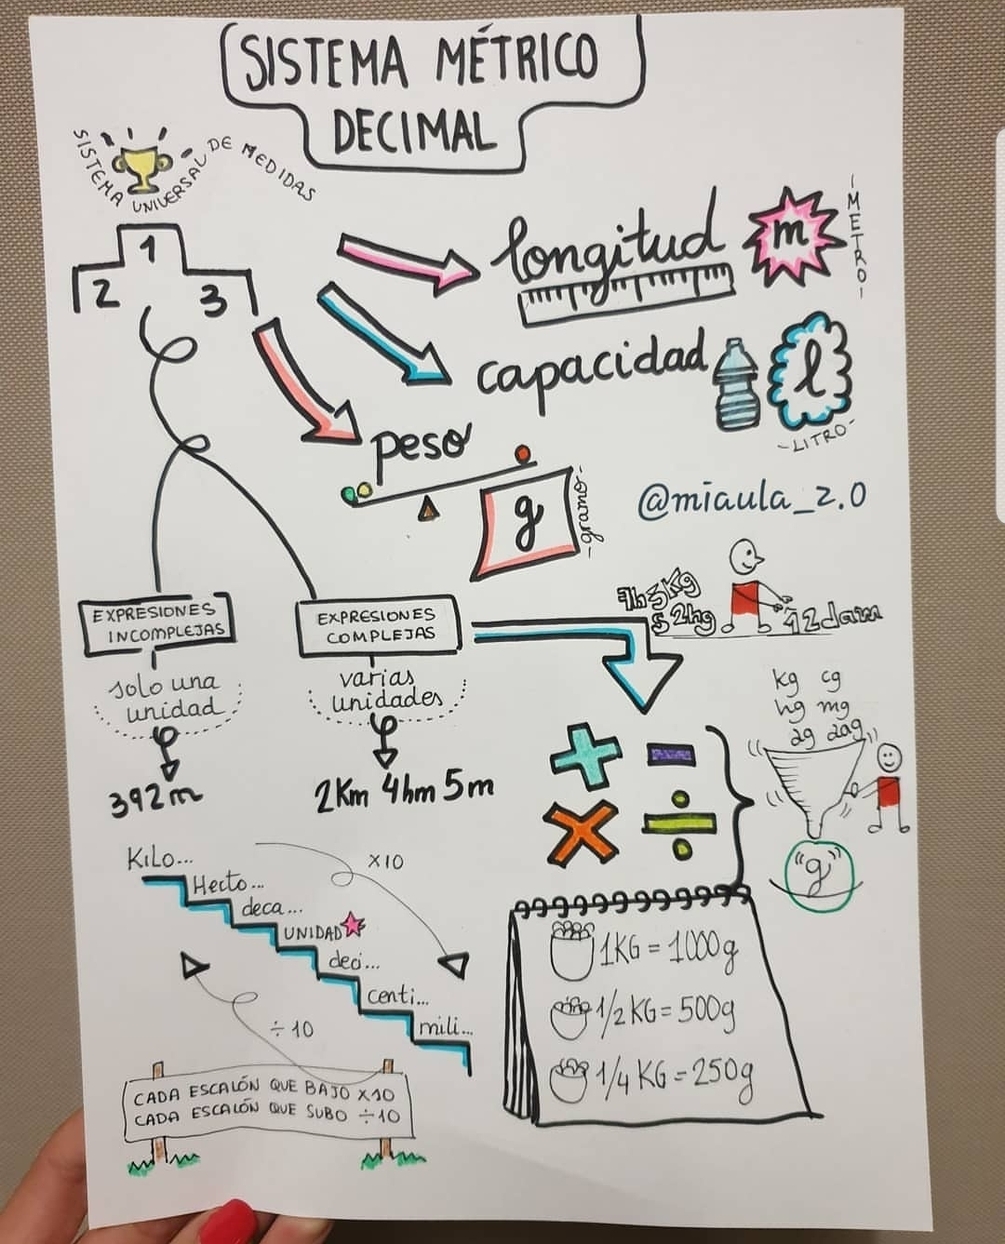 SISTEMA MÉTRICO
DECIMAL
SISTEMA UNIVERSAL DE MEDIDAS
1
2
3
longitud
m
-METRO-
capacidad
l
-LITRO-
peso
g
-gramo-
@miaula_2.0
EXPRESIONES
INCOMPLEJAS
solo una
unidad
392m
EXPRESIONES
COMPLEJAS
varias
unidades
2Km 4hm 5m
3Kg
2hg
12dam
kg cg
hg mg
dag
"g"
+ -
× ÷
KiLo...
Hecto...
deca...
UNIDAD
deci...
centi...
mili...
×10
÷10
CADA ESCALÓN QUE BAJO ×10
CADA ESCALÓN QUE SUBO ÷10
1KG = 1000g
1/2 KG = 500g
1/4 KG = 250g